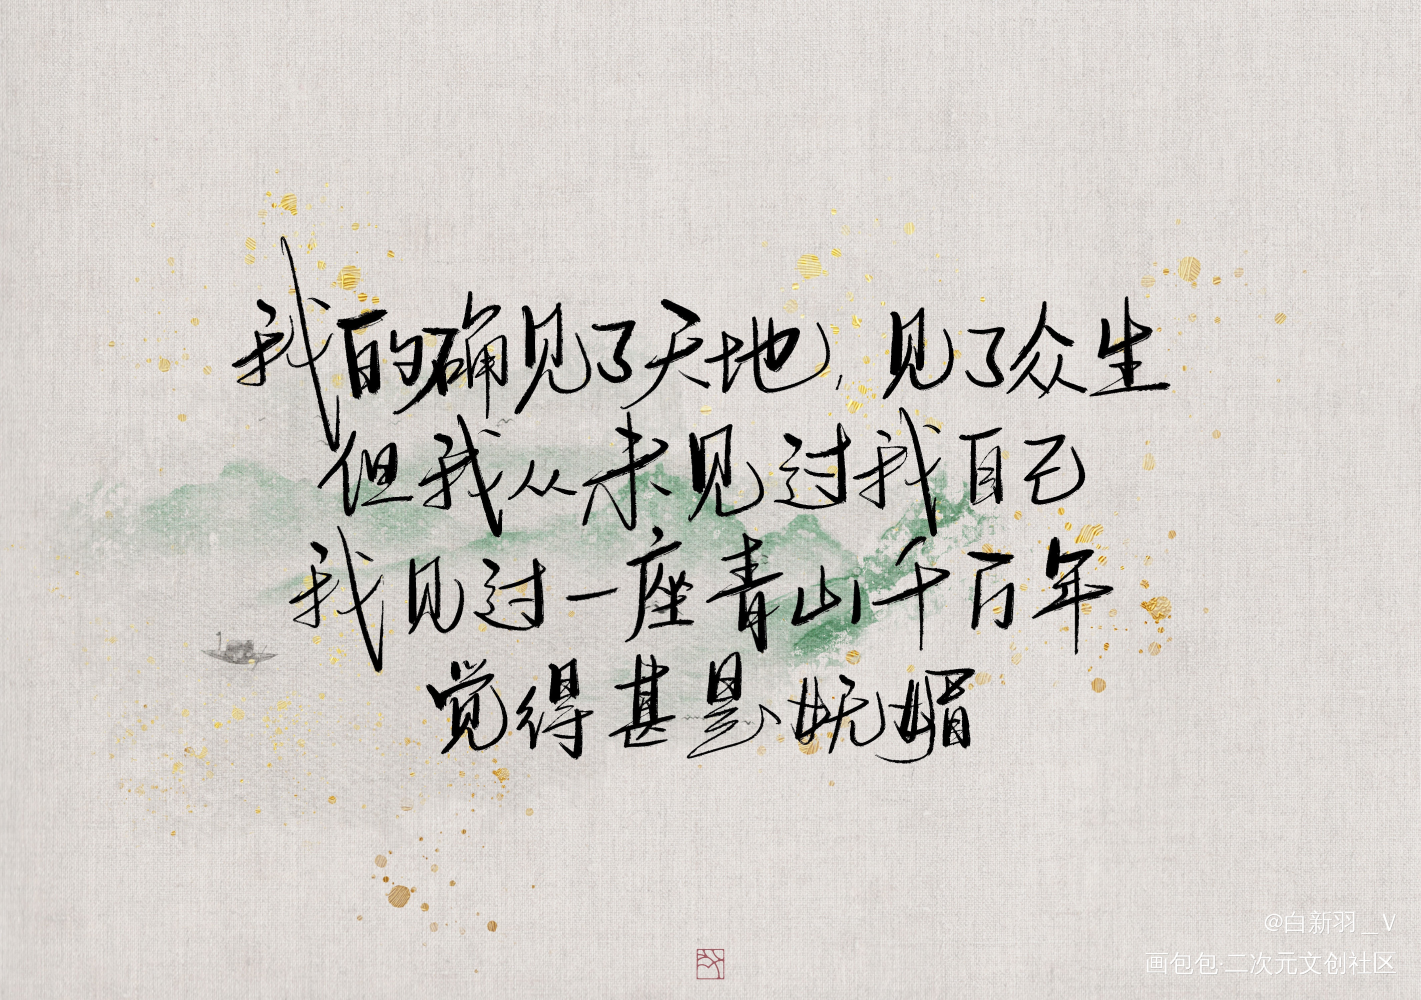 我的确见了天地，见了众生
但我从未见过我自己
我见过一座青山千万年
觉得甚是妩媚
@白新羽＿V
画包包·二次元文创社区